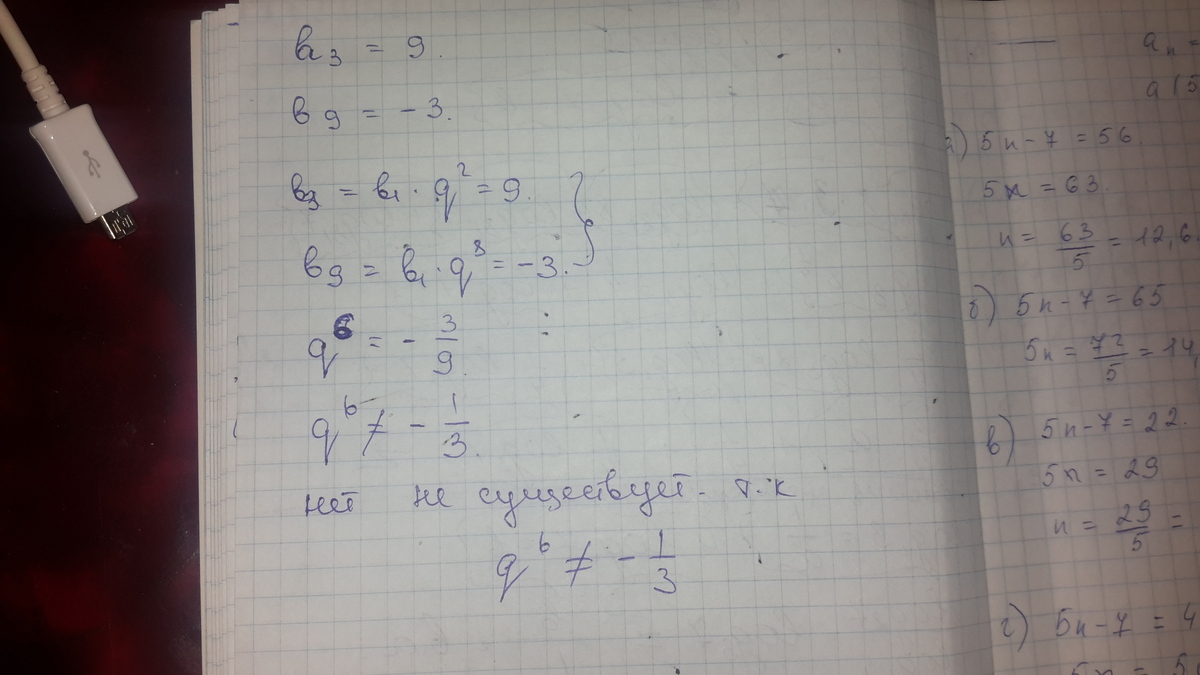 b₃ = 9.
b₉ = -3.
b₃ = b₁ · q² = 9.
b₉ = b₁ · q⁸ = -3.
q⁶ = - 3/9.
q⁶ ≠ - 1/3.
нет не существует. т.к
q⁶ ≠ - 1/3
aₙ =
a(5
а) 5n-7 = 56
5n = 63.
n = 63/5 = 12,6
б) 5n-7 = 65
5n = 72/5 = 14,
в) 5n-7 = 22.
5n = 29
n = 29/5 =
г) 5n-7 = 4